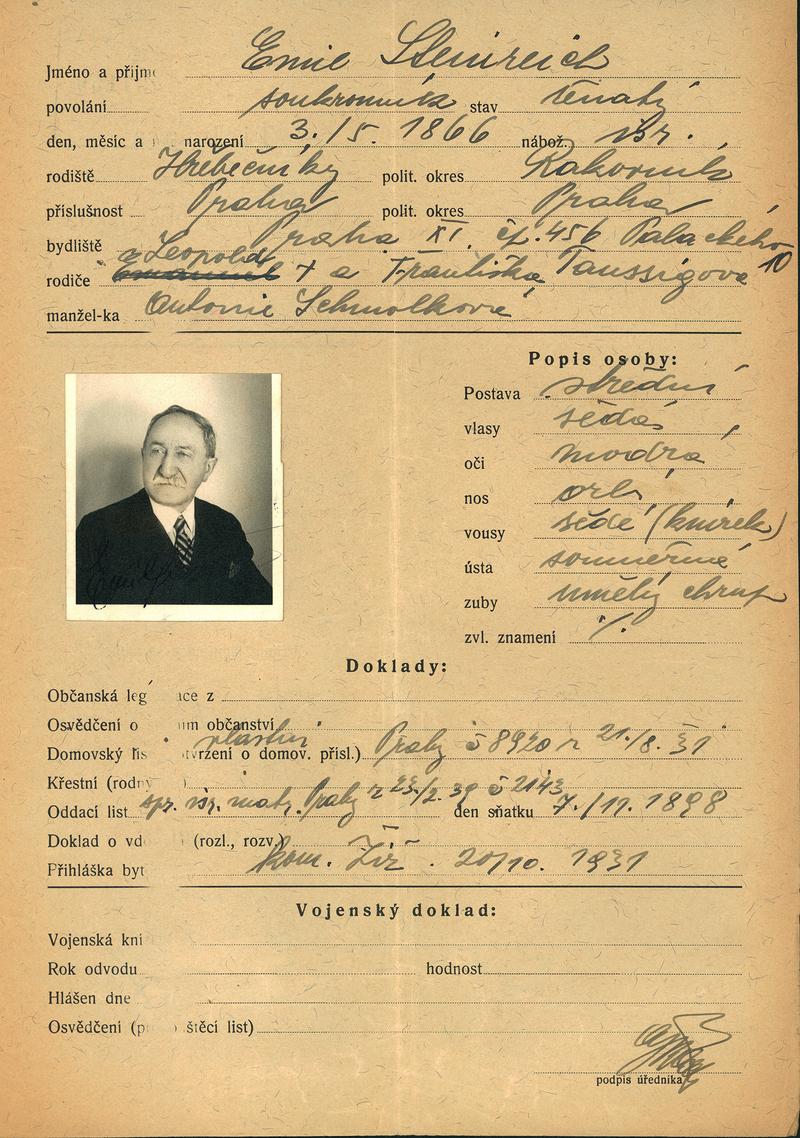 Jméno a přijm Emil Steinreich
povolání soukromník stav ženatý
den, měsíc a narození 3./5. 1866 nábož. isr.
rodiště Hřebečníky polit. okres Rakovník
příslušnost Praha polit. okres Praha
bydliště Praha XI. čp. 456 Palackého 10
Leopold
rodiče Emanuel † a Františka Taussigová
manžel-ka Antonie Schmolková
Popis osoby:
Postava střední
vlasy šedé
oči modrá
nos orlí
vousy šedé (knírek)
ústa souměrná
zuby umělý chrup
zvl. znamení ./.
Doklady:
Občanská leg ace z
Osvědčení o ím občanství
Domovský lis vlastní tvrzení o domov. přísl.) Prahy č 8920 z 21./8. 31
Křestní (rodný )
Oddací list isr. mat. Prahy z 23/2. 39 č 2143 den sňatku 7./11. 1898
Doklad o vd (rozl., rozv.) —
Přihláška byt kom. Žiž. 20/10. 1931
Vojenský doklad:
Vojenská kni
Rok odvodu hodnost
Hlášen dne
Osvědčení (p štěcí list)
podpis úředníka